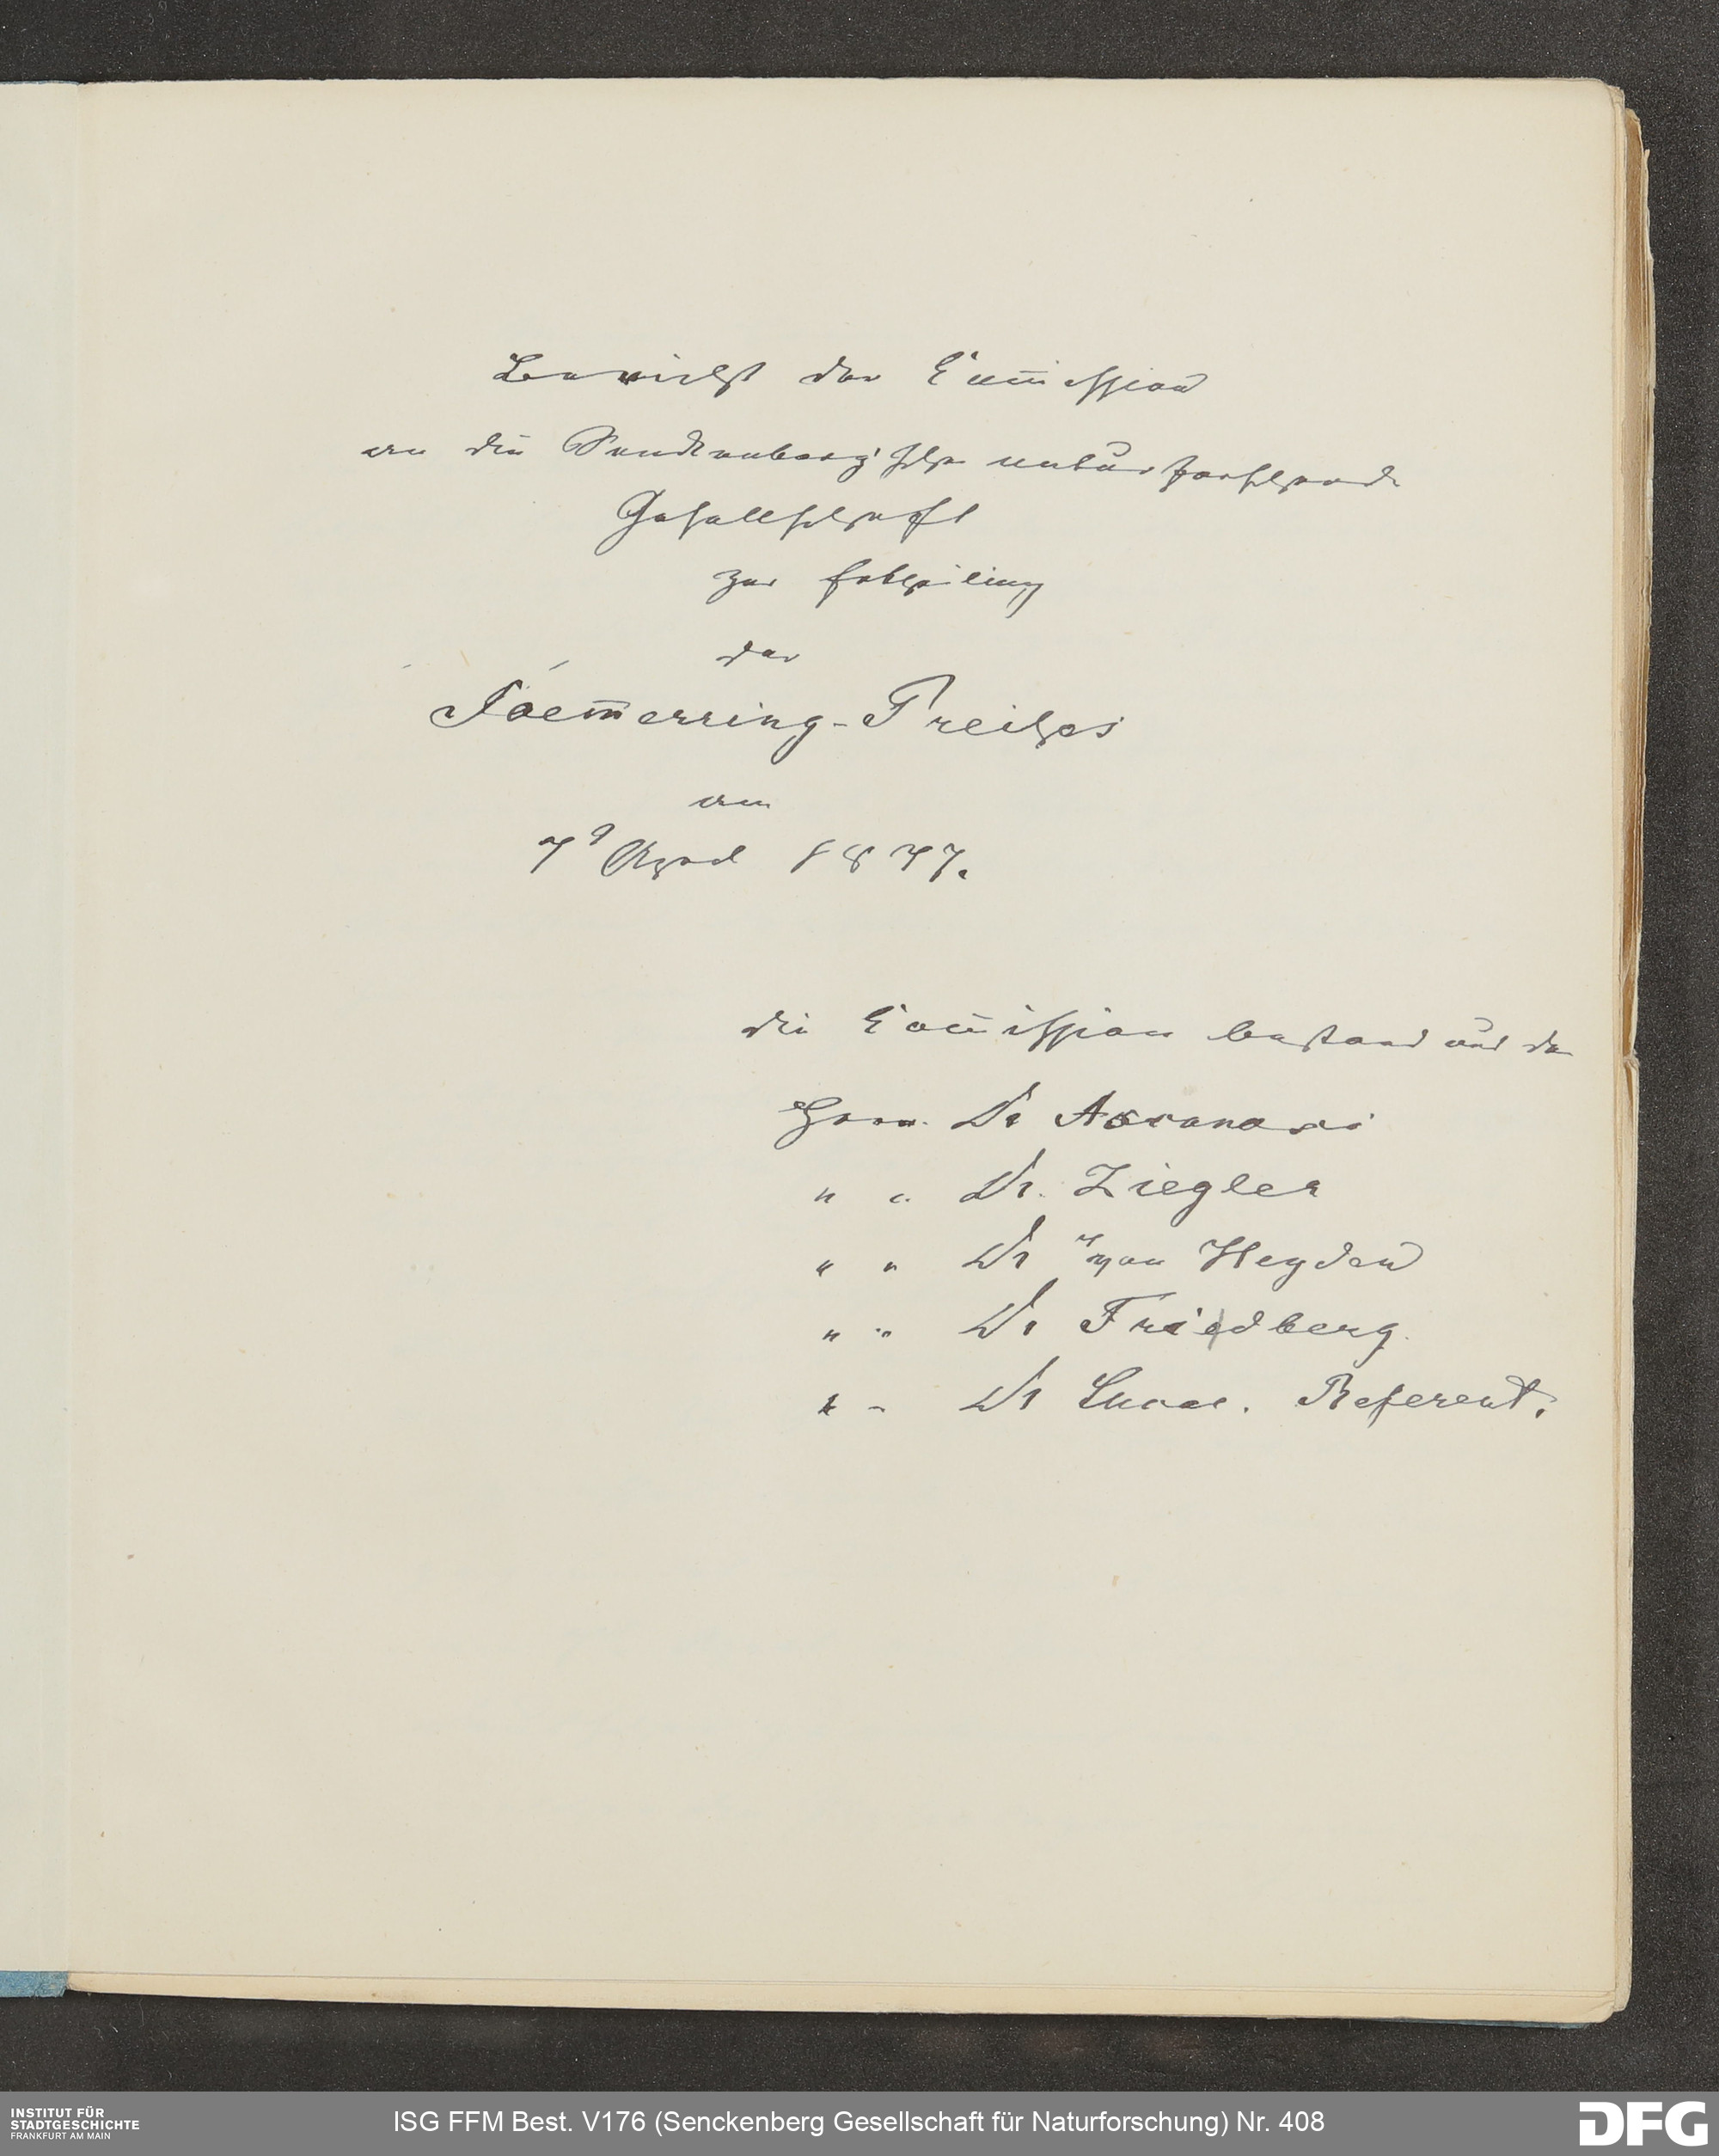 Bericht der Com̅ission
an die Senckenberg'sche naturforschende
Gesellschaft
zur Ertheilung
des
Soem̅erring-Preises
am
7t April 1877.
die Com̅ission bestand aus den
Herrn. Dr
" " Dr. Ziegler
" " Dr von Heyden
" " Dr Friedberg.
" " Dr Lucae. Referent.
INSTITUT FÜR
STADTGESCHICHTE
FRANKFURT AM MAIN
ISG FFM Best. V176 (Senckenberg Gesellschaft für Naturforschung) Nr. 408
DFG